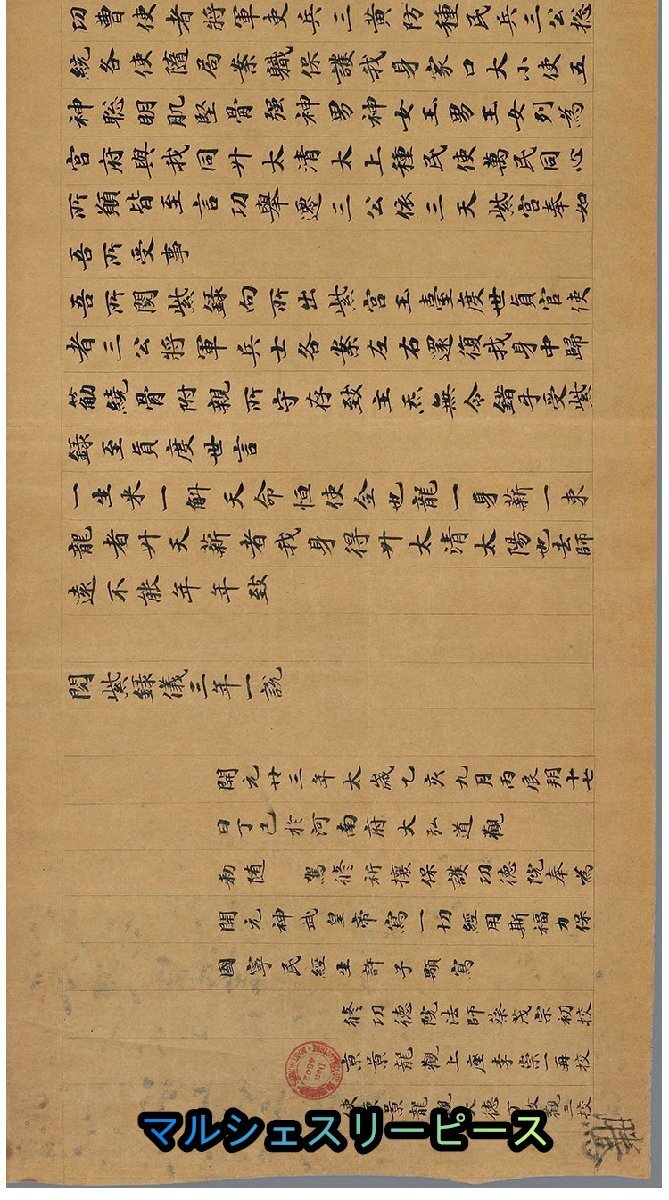 功曹使者將軍吏兵三黃防種民兵三公惣
統各使隨局案軄保護我身家口大小使五
神聡明肌堅骨強神男神女玉男玉女列為
宮府與我同升太清太上種民使萬民同心
所願皆至言功舉遷三公依三天紫宮奉如
吾所受事
吾所閱紫錄向所出紫宮玉臺度世貞官使
者三公將軍兵士各案左右還復我身中歸
筋繞骨附親所守存致主炁無令錯乎受紫
錄至貞度世言
一生米一斛天命恒使全也龍一身薪一束
龍者升天薪者我身得升太清太陽也去師
遠不能年年致
閱紫錄儀三年一說
開元廿三年太歲乙亥九月丙辰朔十七
日丁巳於河南府大弘道觀
勑隨 駕修祈攘保護功德院奉為
開元神武皇帝寫一切經用斯福力保
國寧民經生許子顒寫
修功德院法師蔡茂宗初校
京景龍觀上座李崇一再校
使京景龍觀大德丁政觀三校
マルシェスリーピース